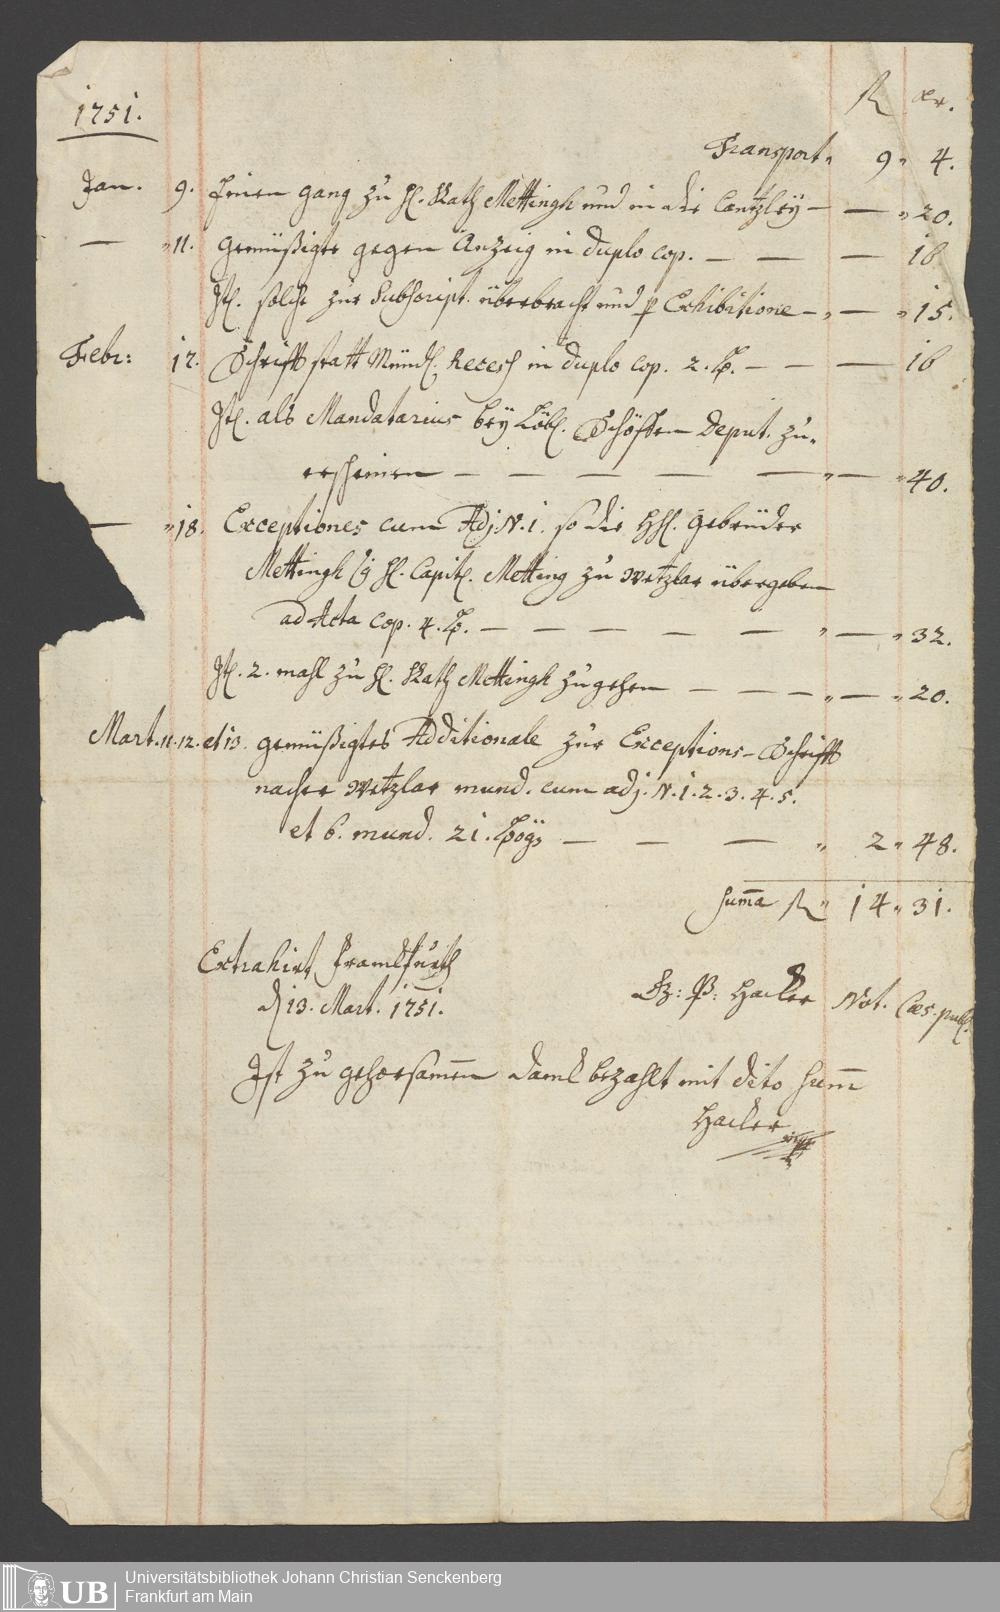 1751.
fl xr.
Transport " 9 " 4.
Jan. 9. Einen gang zu H. Rath Mettingh und in die Cantzley — — " 20.
— " 11. gemüßigte gegen Anzeig in duplo cop. — — — 16
It. solche zur Subscript. überbracht und p Exhibitione — " — " 15.
Febr: 12. Schrifft statt Mündl. Recess in duplo cop. 2. B. — — — 16
It. als Mandatarius bey Löbl. Schöffen Deput. zu-
erscheinen — — — — — " — " 40.
— " 18. Exceptiones cum Adj. N. 1. so die HH. Gebrüder
Mettingh H. Capit. Metting zu Wetzlar übergeben
ad Acta cop. 4. B. — — — — — " — " 32.
It. 2. mahl zu H. Rath Mettingh zugehen — — — " — " 20.
Mart. 11. 12. et 13. gemüßigtes Additionale zur Exceptions-Schrifft
nacher Wetzlar mund. cum adj. N. 1. 2. 3. 4. 5.
et 6. mund. 21. Bög — — — " 2 " 48.
Summa fl " 14 " 31.
Extrahirt Franckfurth
d 13. Mart. 1751.
Hacker Not. Caes. publ.
Ist zu gehorsamen Danck bezahlt mit dito Sum̄
Hacker
UB Universitätsbibliothek Johann Christian Senckenberg
Frankfurt am Main